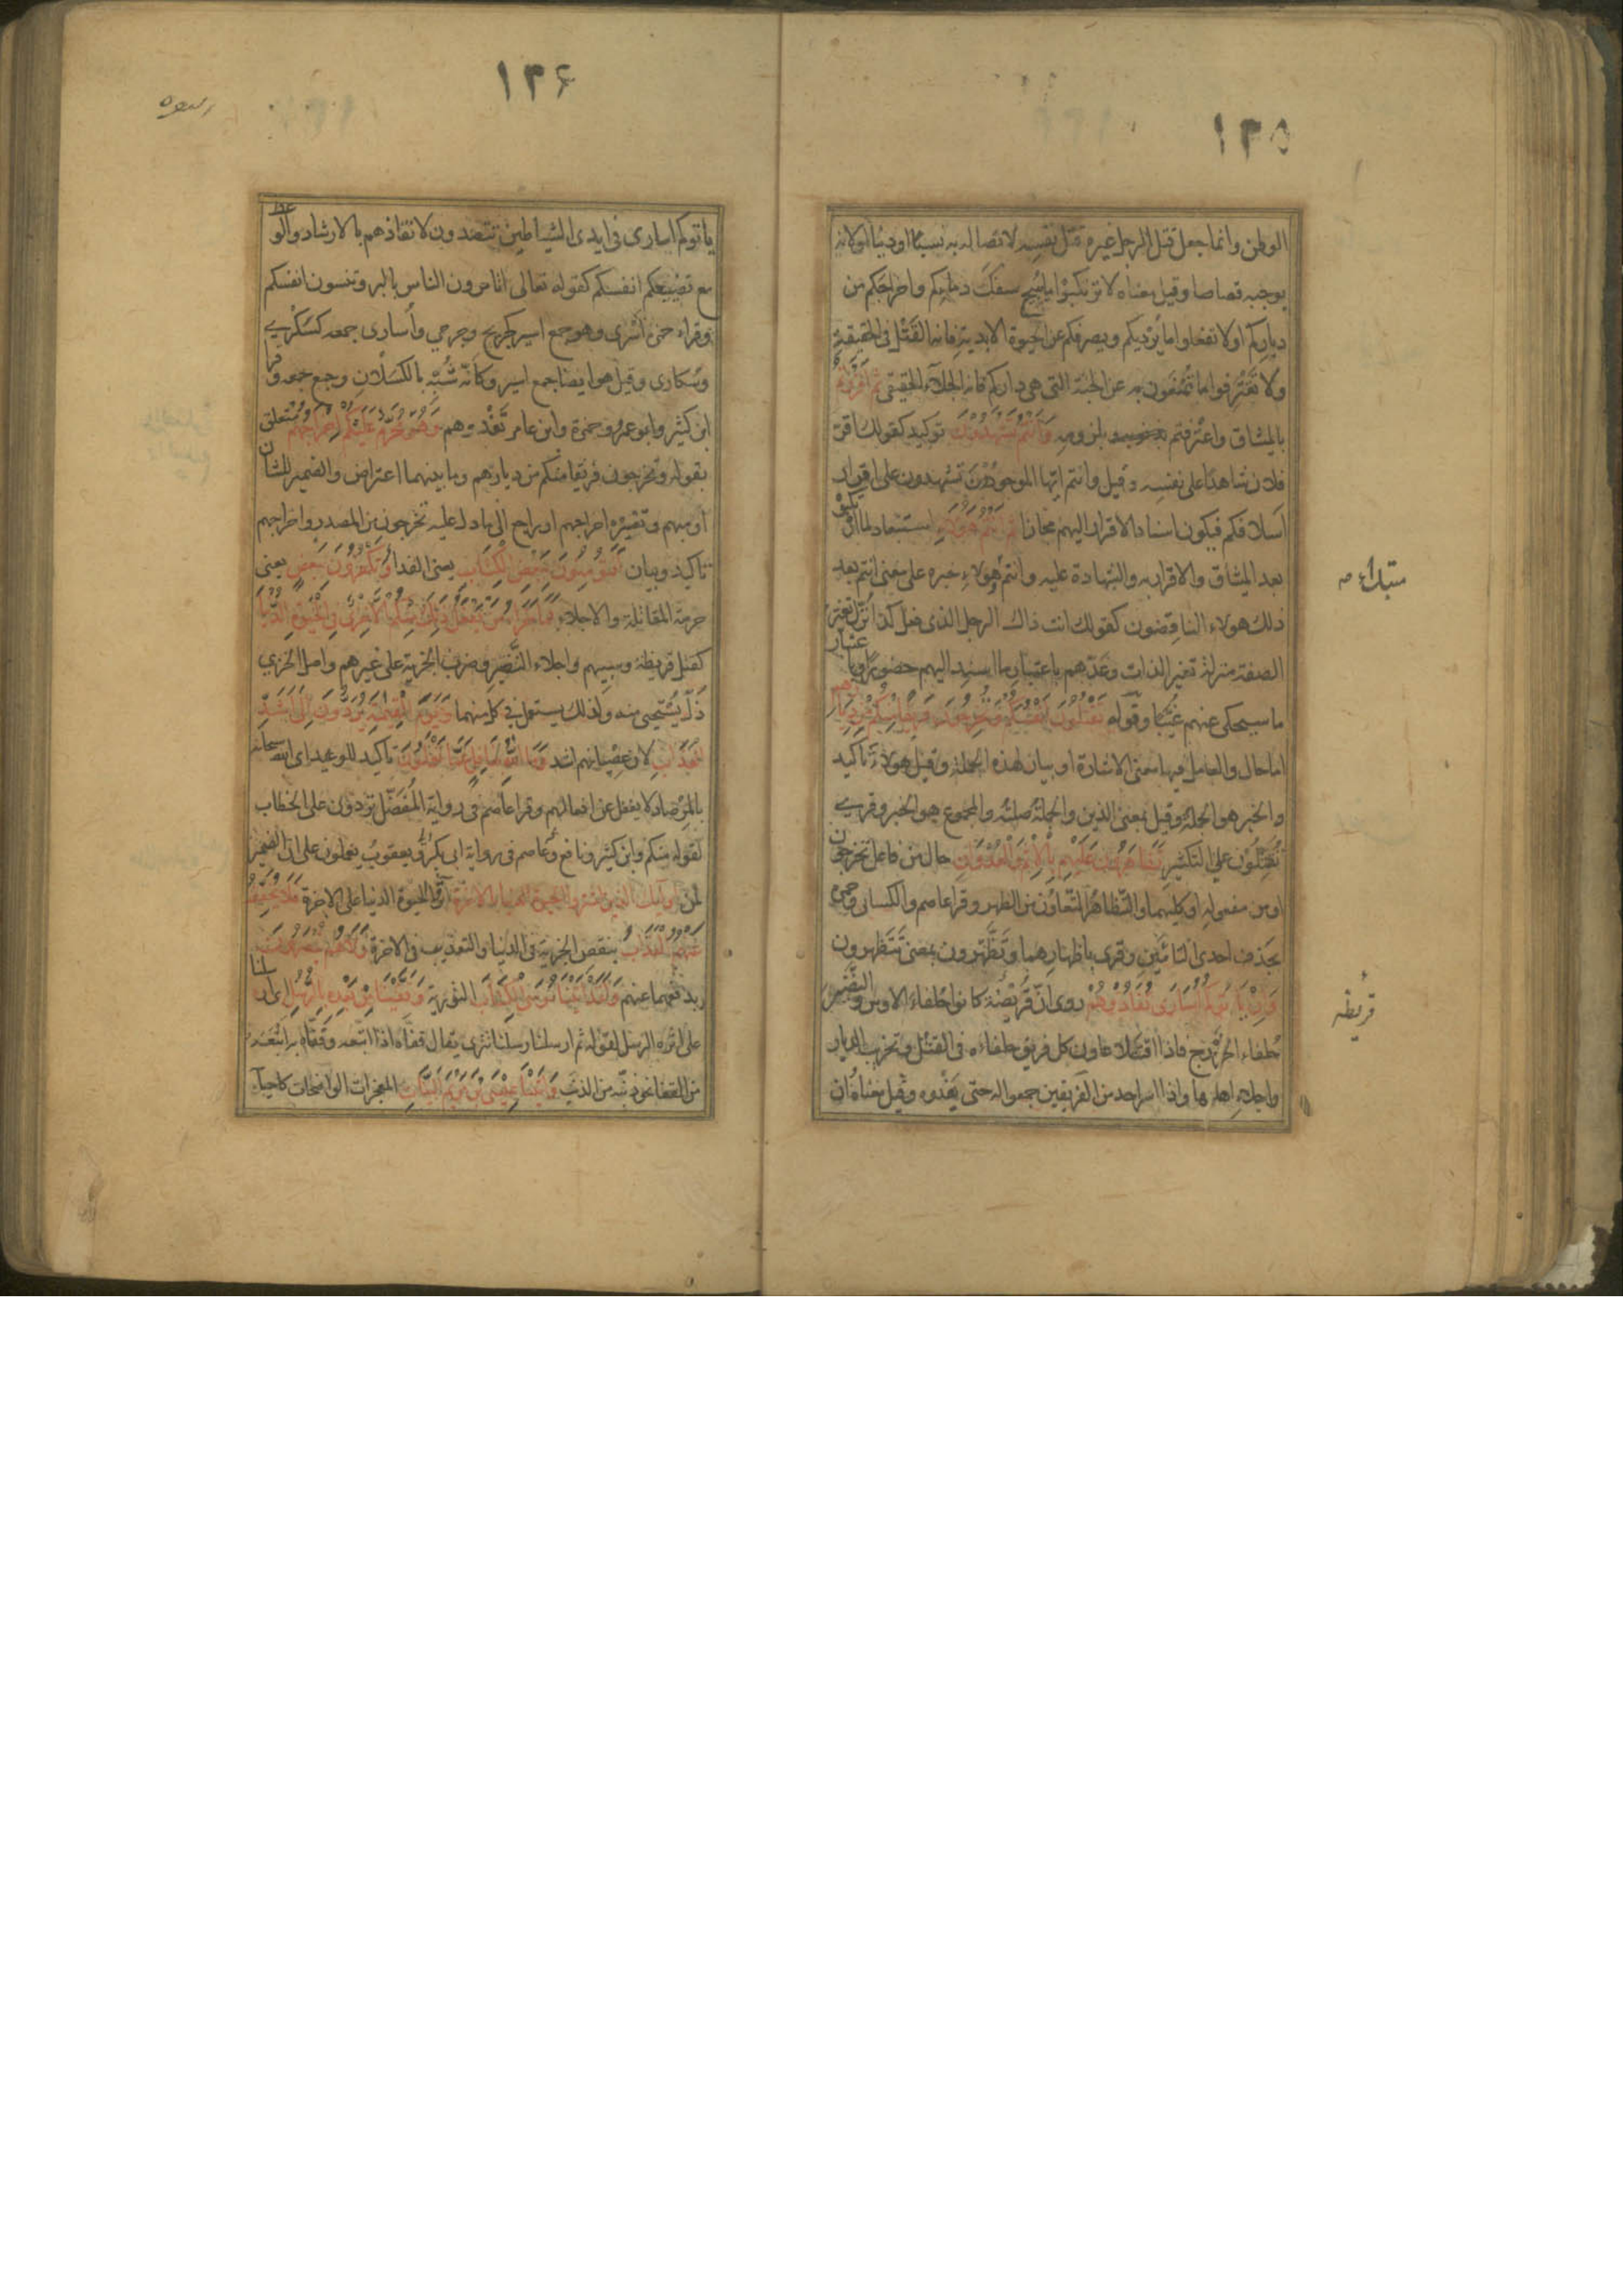 ١٣٥
الوطن وانما جعل قتل الرجل غيره قتل نفسه لاتصاله به نسبًا او دينًا او لانه
يوجبه قصاصا وقيل معناه لا ترتكبوا ما يبيح سفك دمائكم واخراجكم من
دياركم او لا تفعلوا ما يرديكم ويصرفكم عن الحيوة الابدية فانه القتل فى الحقيقة
ولا تقترفوا ما تمنعون به عن الجنة التى هى داركم فانه الجلاء الحقيقى ثم اقررتم
بالميثاق واعترفتم بلزومه وانتم تشهدون توكيد كقولك اقر
فلان شاهدًا على نفسه وقيل وانتم ايها الموجودون تشهدون على اقرار
اسلافكم فيكون اسناد الاقرار اليهم مجازا ثم انتم هؤلاء استبعاد لما ارتكبوه
بعد الميثاق والاقرار به والشهادة عليه وانتم هؤلاء خبره على معنى انتم بعد
ذلك هولاء الناقضون كقولك انت ذاك الرجل الذى فعل كذا نزل تغير
الصفة منزلة تغير الذات وعدهم باعتبار ما اسند اليهم حضورًا وباعتبار
ما سيحكى عنهم غيبًا وقوله تقتلون انفسكم وتخرجون فريقا منكم من ديارهم
اما حال والعامل فيها معنى الاشارة او بيان لهذه الجملة وقيل هؤلاء تاكيد
والخبر هو الجملة وقيل بمعنى الذين والجملة صلته والمجموع هو الخبر وقرى
تقتلون على التكثير تظاهرون عليهم بالاثم والعدوان حال من فاعل تخرجون
او من مفعوله او كليهما والتظاهر التعاون من الظهر وقرا عاصم والكسائى وحمزة
بحذف احدى التائين وقرى باظهارهما وتظهرون بمعنى تتظهرون
وان ياتوكم اسارى تفادوهم روى ان قريضة كانوا حلفاء الاوس والنضير
حلفاء الخزرج فاذا اقتتلا عاون كل فريق حلفاءه فى القتل وتخريب الديار
واجلاء اهلها واذا اسر احد من الفريقين جمعوا له حتى يفدوه وقيل معناه ان
مبتداء صح
قريظه
١٣۶
ياتوكم اسارى فى ايدى الشياطين تتصدون لانقاذهم بالارشاد والوعظ
مع تضييعكم انفسكم كقوله تعالى اتامرون الناس بالبر وتنسون انفسكم
وقراء حمزة اسرى وهو جمع اسير كجريح وجرحى وأسارى جمعه كسكرى
وسكارى وقيل هو ايضا جمع اسير وكانه شبه بالكسلان وجمع جمعه وقرا
ابن كثير وابو عمرو وحمزة وابن عامر تفدوهم وهو محرم عليكم اخراجهم متعلق
بقوله وتخرجون فريقا منكم من ديارهم وما بينهما اعتراض والضمير للشان
او مبهم وتفسيره اخراجهم او راجع الى ما دل عليه تخرجون من المصدر واخراجهم
تاكيد وبيان افتؤمنون ببعض الكتاب يعنى الفدا وتكفرون ببعض يعنى
حرمة المقاتلة والاجلاء فما جزاء من يفعل ذلك منكم الا خزى فى الحيوة الدنيا
كقتل قريظة وسبيهم واجلاء النضير وضرب الجزية على غيرهم واصل الخزى
ذل يستحيى منه ولذلك يستعمل فى كل منهما ويوم القيمة يردون الى اشد
العذاب لان عصيانهم اشد وما الله بغافل عما تعملون تاكيد للوعيد اى الله سبحانه
بالمرصاد لا يغفل عن افعالهم وقرا عاصم فى رواية المفضل تردون على الخطاب
لقوله منكم وابن كثير ونافع وعاصم فى رواية ابى بكر ويعقوب يعملون على ان الضمير
لمن اولئك الذين اشتروا الحيوة الدنيا بالاخرة اثروا الحيوة الدنيا على الاخرة فلا يخفف
عنهم العذاب بنقص الجزية فى الدنيا والتعذيب فى الاخرة ولا هم ينصرون
بدفعهما عنهم ولقد اتينا موسى الكتاب التورية وقفينا من بعده بالرسل اى ارسلنا
على اثره الرسل لقوله ثم ارسلنا رسلنا تترى يقال قفاه اذا اتبعه وقفاه به اتبعه
من القفا نحو ذنبه من الذنب واتينا عيسى بن مريم البينات المعجزات الواضحات كاحياء